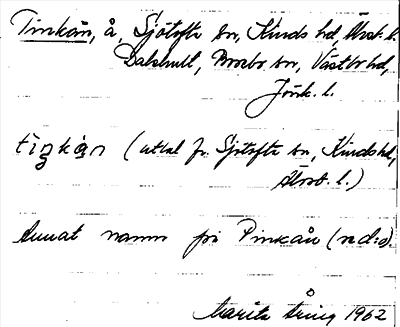 Tinkån, å, Sjötofta sn, Kinds hd, Älvsb. l.
Dalshult, Bosebo sn, Västbo hd,
Jönk. l.
(uttal fr. Sjötofta sn, Kinds hd,
Älvsb. l.)
Annat namn på Pinkån (red:s).
Marita 1962